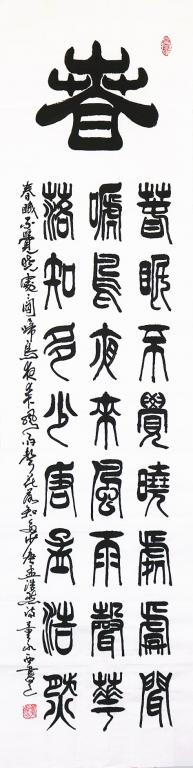 春
春眠不覺曉處處聞
嗁鳥夜來風雨聲華
落知多少唐孟浩然
春眠不覺曉處處聞啼鳥夜来風雨聲花落知多少唐孟浩然詩